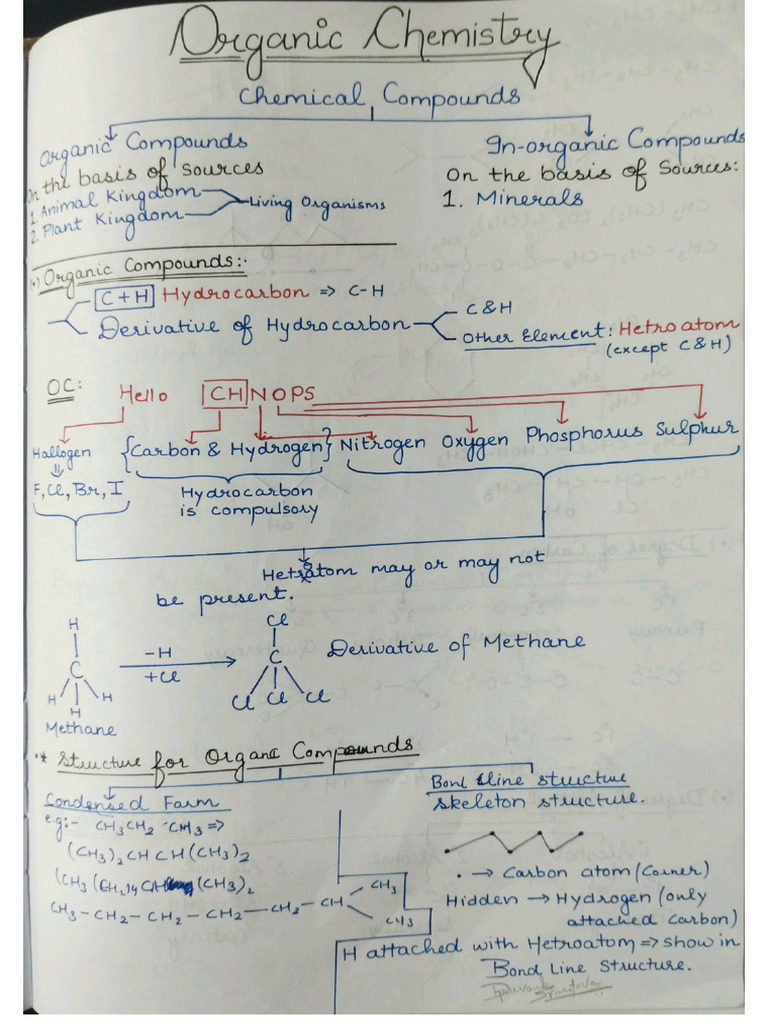 Organic Chemistry
Chemical Compounds
Organic Compounds
On the basis of Sources
1. Animal Kingdom
2. Plant Kingdom
Living Organisms
In-organic Compounds
On the basis of Sources:
1. Minerals
(•) Organic Compounds:-
C+H Hydrocarbon => C-H
Derivative of Hydrocarbon
C & H
Other Element: Hetroatom
(except C & H)
OC: Hello CHNOPS
Hallogen {Carbon & Hydrogen} Nitrogen Oxygen Phosphorus Sulphur
F, Cl, Br, I
Hydrocarbon
is compulsory
Hetroatom may or may not
be present.
H
C
H H H
Methane
-H
+Cl
Cl
C
Cl Cl Cl
Derivative of Methane
* Structure for Organc Compounds
Condensed Farm
e.g:- CH3CH2-CH3 =>
(CH3)2CH CH(CH3)2
(CH3(CH2)4CH(CH3)2
CH3-CH2-CH2-CH2-CH2-CH
CH3
CH3
Bond line structure
skeleton structure.
. → Carbon atom (Corner)
Hidden → Hydrogen (only
attached carbon)
H attached with Hetroatom => show in
Bond Line Structure.